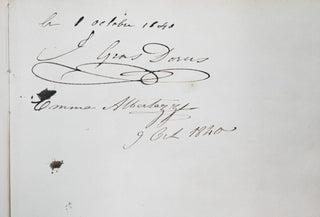 le 8 octobre 1840
J Gras Dorus
Emma Albertazzi
9 Oct 1840